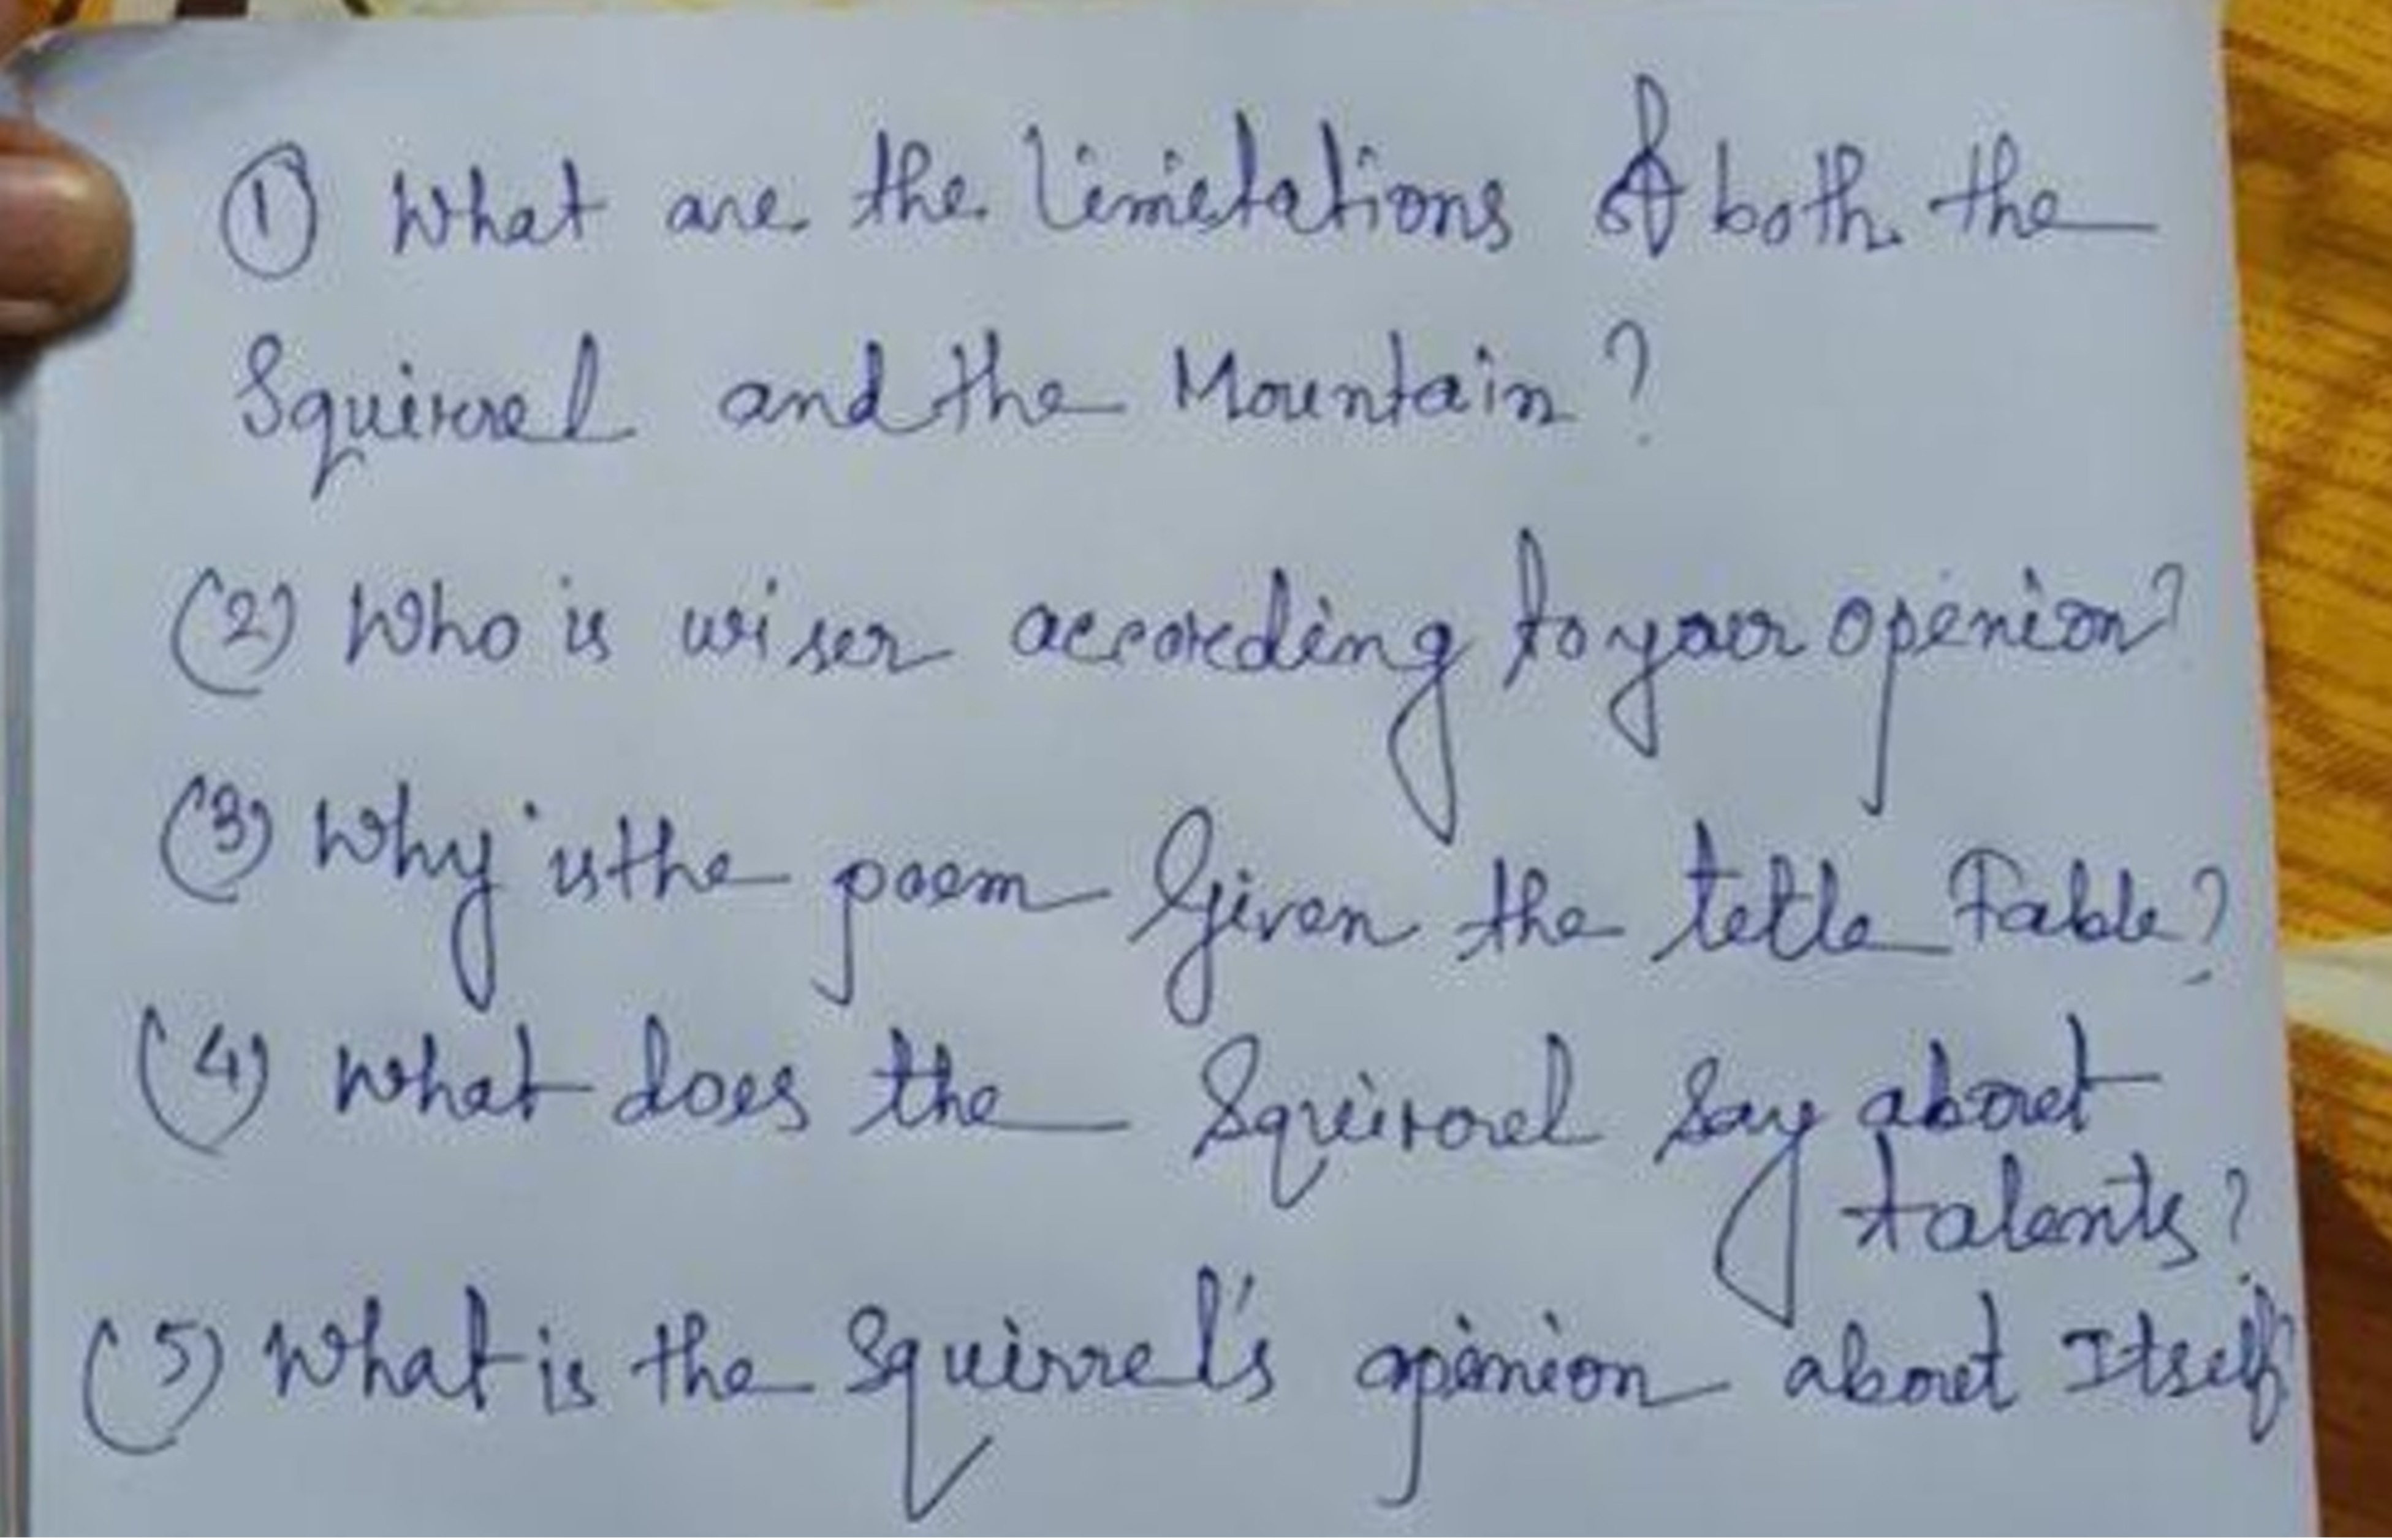 ① What are the limitations of both the
Squirrel and the Mountain?
(2) Who is wiser according to your openion?
(3) Why is the poem Given the tetle Fable?
(4) What does the Squirrel Say about
talents?
(5) What is the Squirrel's opinion about Itself